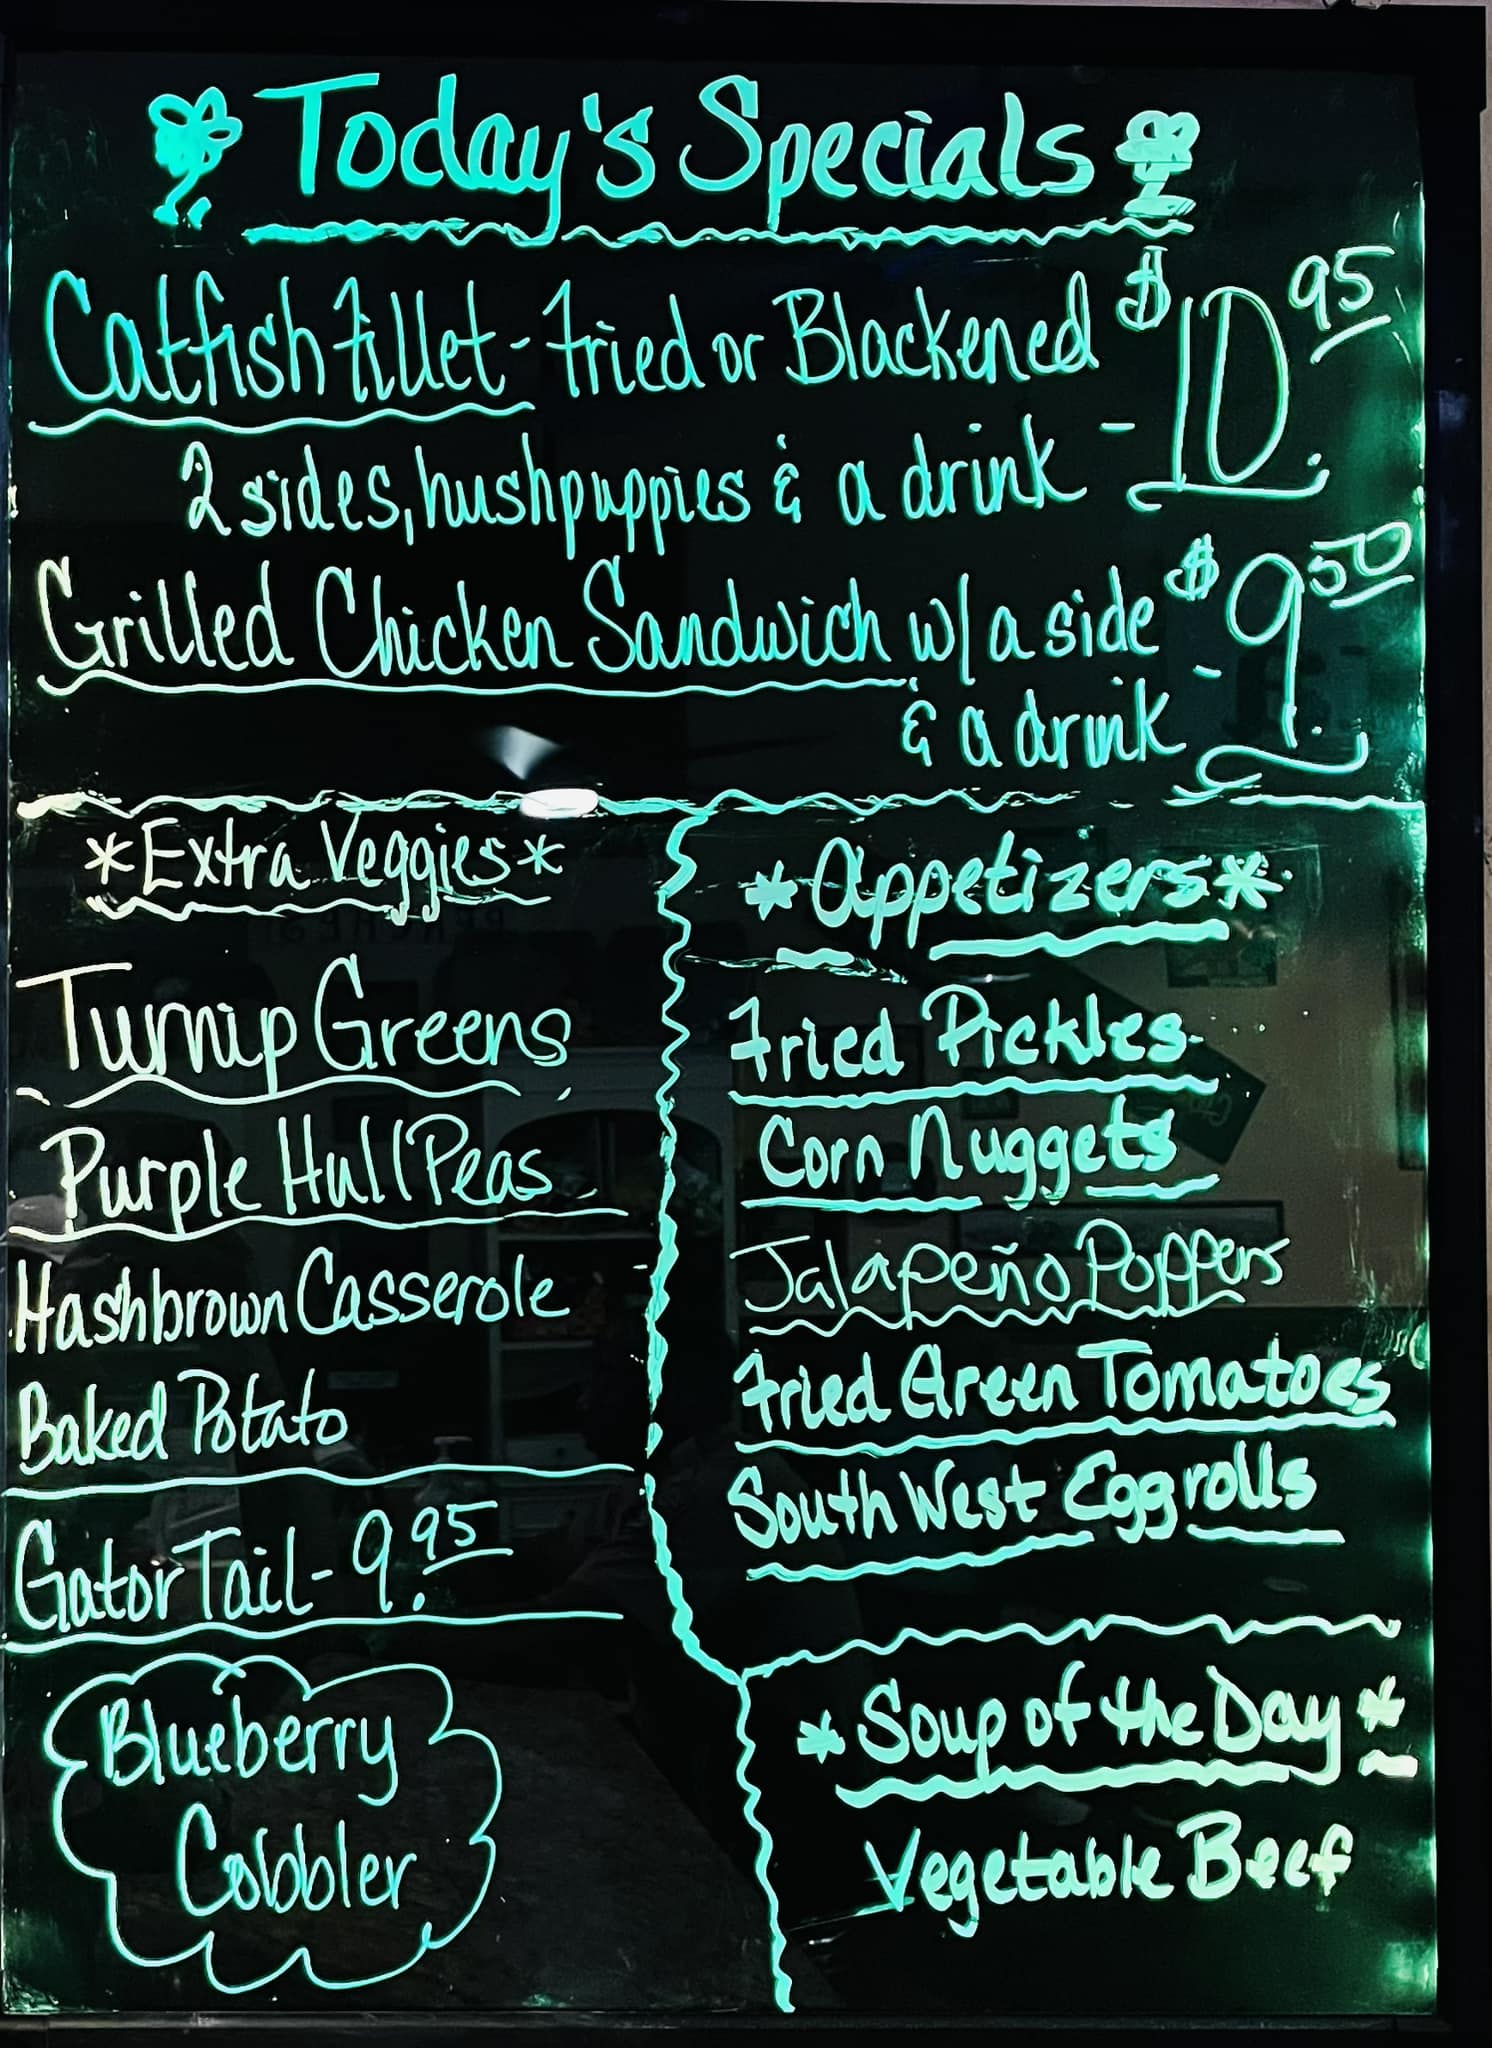 Today's Specials
Catfish Fillet - Fried or Blackened
2 sides, hushpuppies & a drink - $10.95
Grilled Chicken Sandwich w/ a side
& a drink - $9.50
*Extra Veggies*
Turnip Greens
Purple Hull Peas
Hashbrown Casserole
Baked Potato
Gator Tail - 9.95
Blueberry
Cobbler
*Appetizers*
Fried Pickles
Corn Nuggets
Jalapeño Poppers
Fried Green Tomatoes
South West Eggrolls
*Soup of the Day*
Vegetable Beef